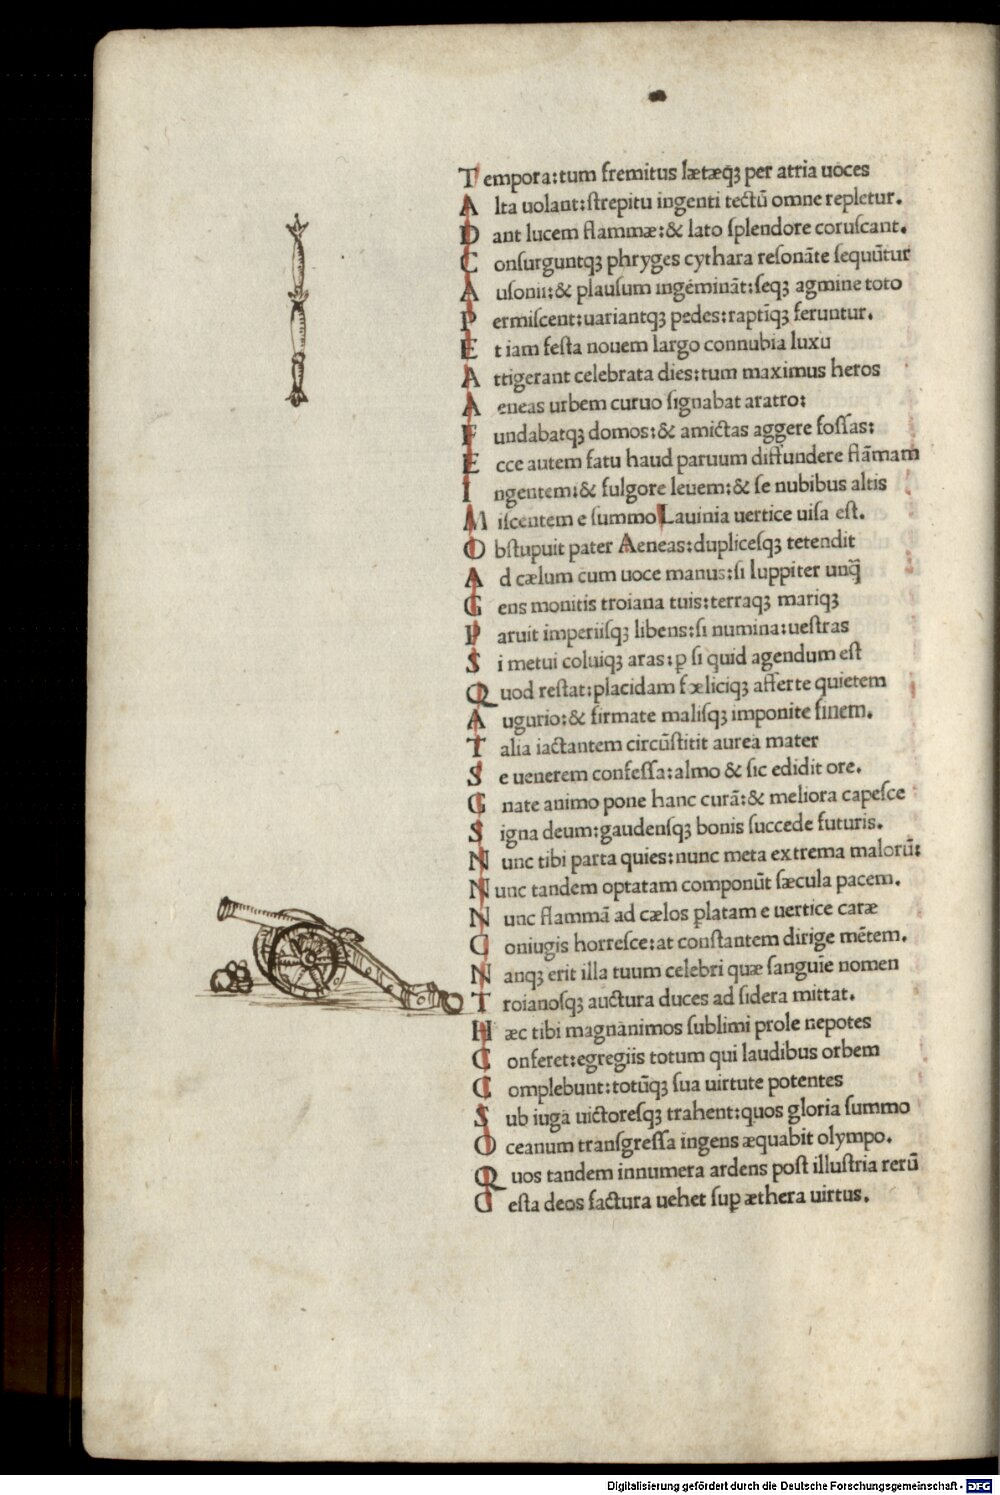 Tempora:tum fremitus lætæqꝫ per atria uoces
Alta uolant:ſtrepitu ingenti tectū omne repletur.
Dant lucem flammæ:& lato ſplendore coruſcant.
Conſurguntqꝫ phryges cythara reſonāte ſequūtur
Auſonii:& plauſum ingémināt:ſeqꝫ agmine toto
Permiſcent:uariantqꝫ pedes:raptīqꝫ feruntur.
Et iam feſta nouem largo connubia luxu
Attigerant celebrata dies:tum maximus heros
Aeneas urbem curuo ſignabat aratro:
Fundabatqꝫ domos:& amictas aggere foſſas:
Ecce autem fatu haud paruum diffundere flāmam
Ingentem:& fulgore leuem:& ſe nubibus altis
Miſcentem e ſummo Lauinia uertice uiſa eſt.
Obſtupuit pater Aeneas:dupliceſqꝫ tetendit
Ad cælum cum uoce manus:ſi Iuppiter unq̃
Gens monitis troiana tuis:terraqꝫ mariqꝫ
Paruit imperiiſqꝫ libens:ſi numina:ueſtras
Si metui coluiqꝫ aras:ꝑ ſi quid agendum eſt
Quod reſtat:placidam fœliciqꝫ afferte quietem
Augurio:& firmate maliſqꝫ imponite finem.
Talia iactantem circūſtitit aurea mater
Se uenerem confeſſa:almo & ſic edidit ore.
Gnate animo pone hanc curā:& meliora capeſce
Signa deum:gaudenſqꝫ bonis ſuccede futuris.
Nunc tibi parta quies:nunc meta extrema malorū:
Nunc tandem optatam componūt ſæcula pacem.
Nunc flammā ad cælos ꝑlatam e uertice caræ
Coniugis horreſce:at conſtantem dirige mētem.
Nanqꝫ erit illa tuum celebri quæ ſanguīe nomen
Troianoſqꝫ auctura duces ad ſidera mittat.
Hæc tibi magnànimos ſublimi prole nepotes
Conferet:egregiis totum qui laudibus orbem
Complebunt:totūqꝫ ſua uirtute potentes
Sub iuga uictoreſqꝫ trahent:quos gloria ſummo
Oceanum tranſgreſſa ingens æquabit olympo.
Quos tandem innumera ardens poſt illuſtria rerū
Geſta deos factura uehet ſuꝑ æthera uirtus.
Digitalisierung gefördert durch die Deutsche Forschungsgemeinschaft - DFG